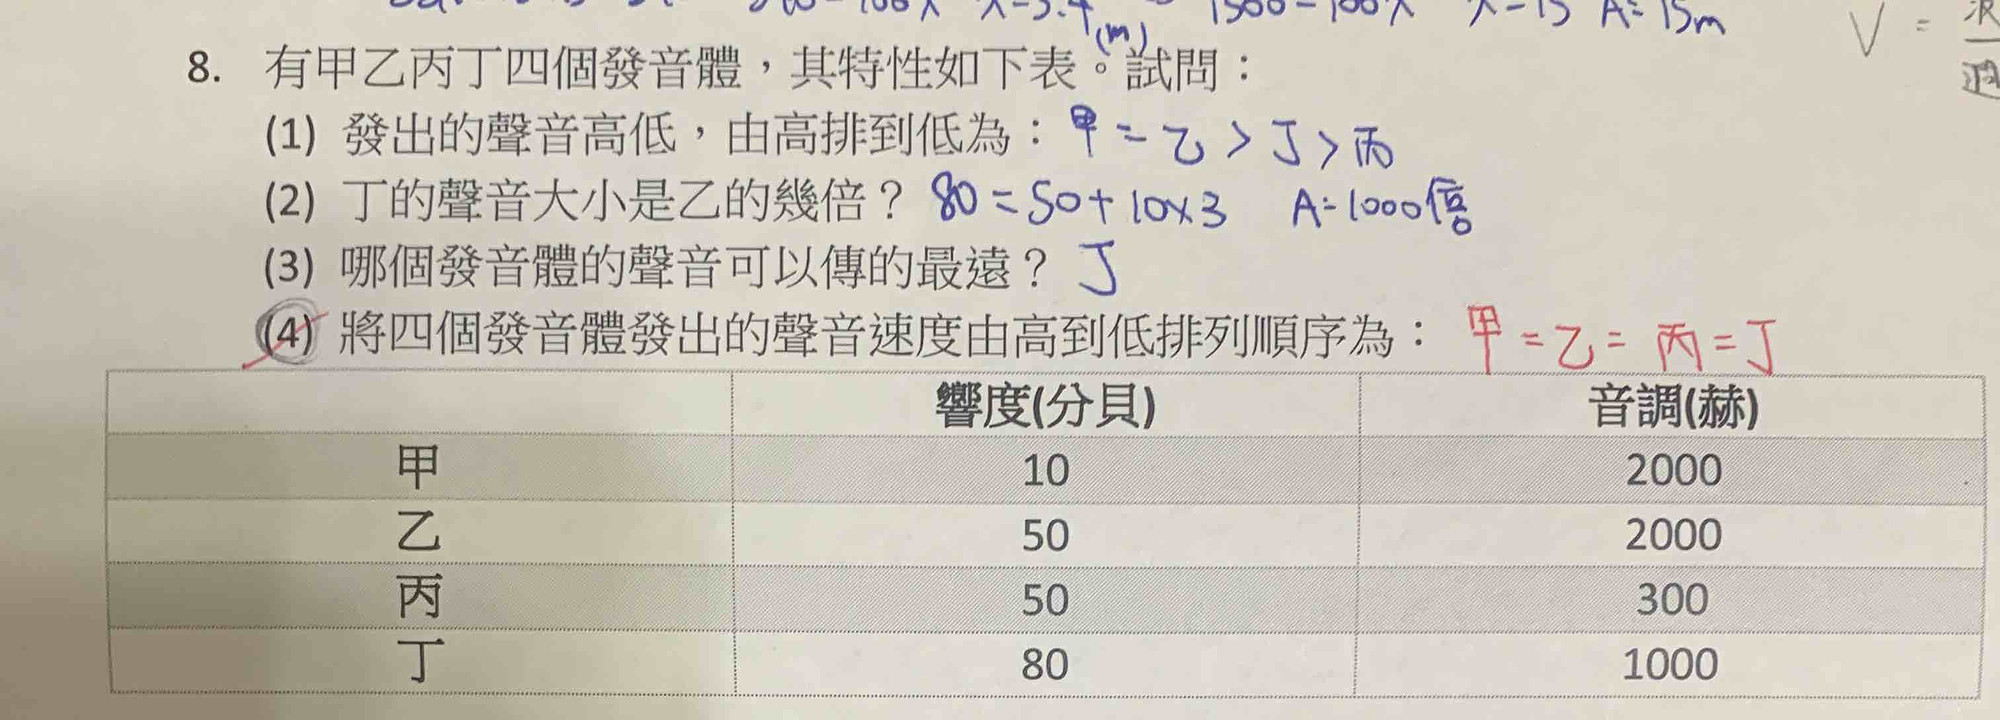 x=3.4(m) 1500=100x x=15 A:15m
V =
8. 有甲乙丙丁四個發音體，其特性如下表。試問：
(1) 發出的聲音高低，由高排到低為：甲=乙>丁>丙
(2) 丁的聲音大小是乙的幾倍？ 80=50+10x3 A:1000倍
(3) 哪個發音體的聲音可以傳的最遠？ 丁
(4) 將四個發音體發出的聲音速度由高到低排列順序為： 甲=乙=丙=丁
響度(分貝) 音調(赫)
甲 10 2000
乙 50 2000
丙 50 300
丁 80 1000